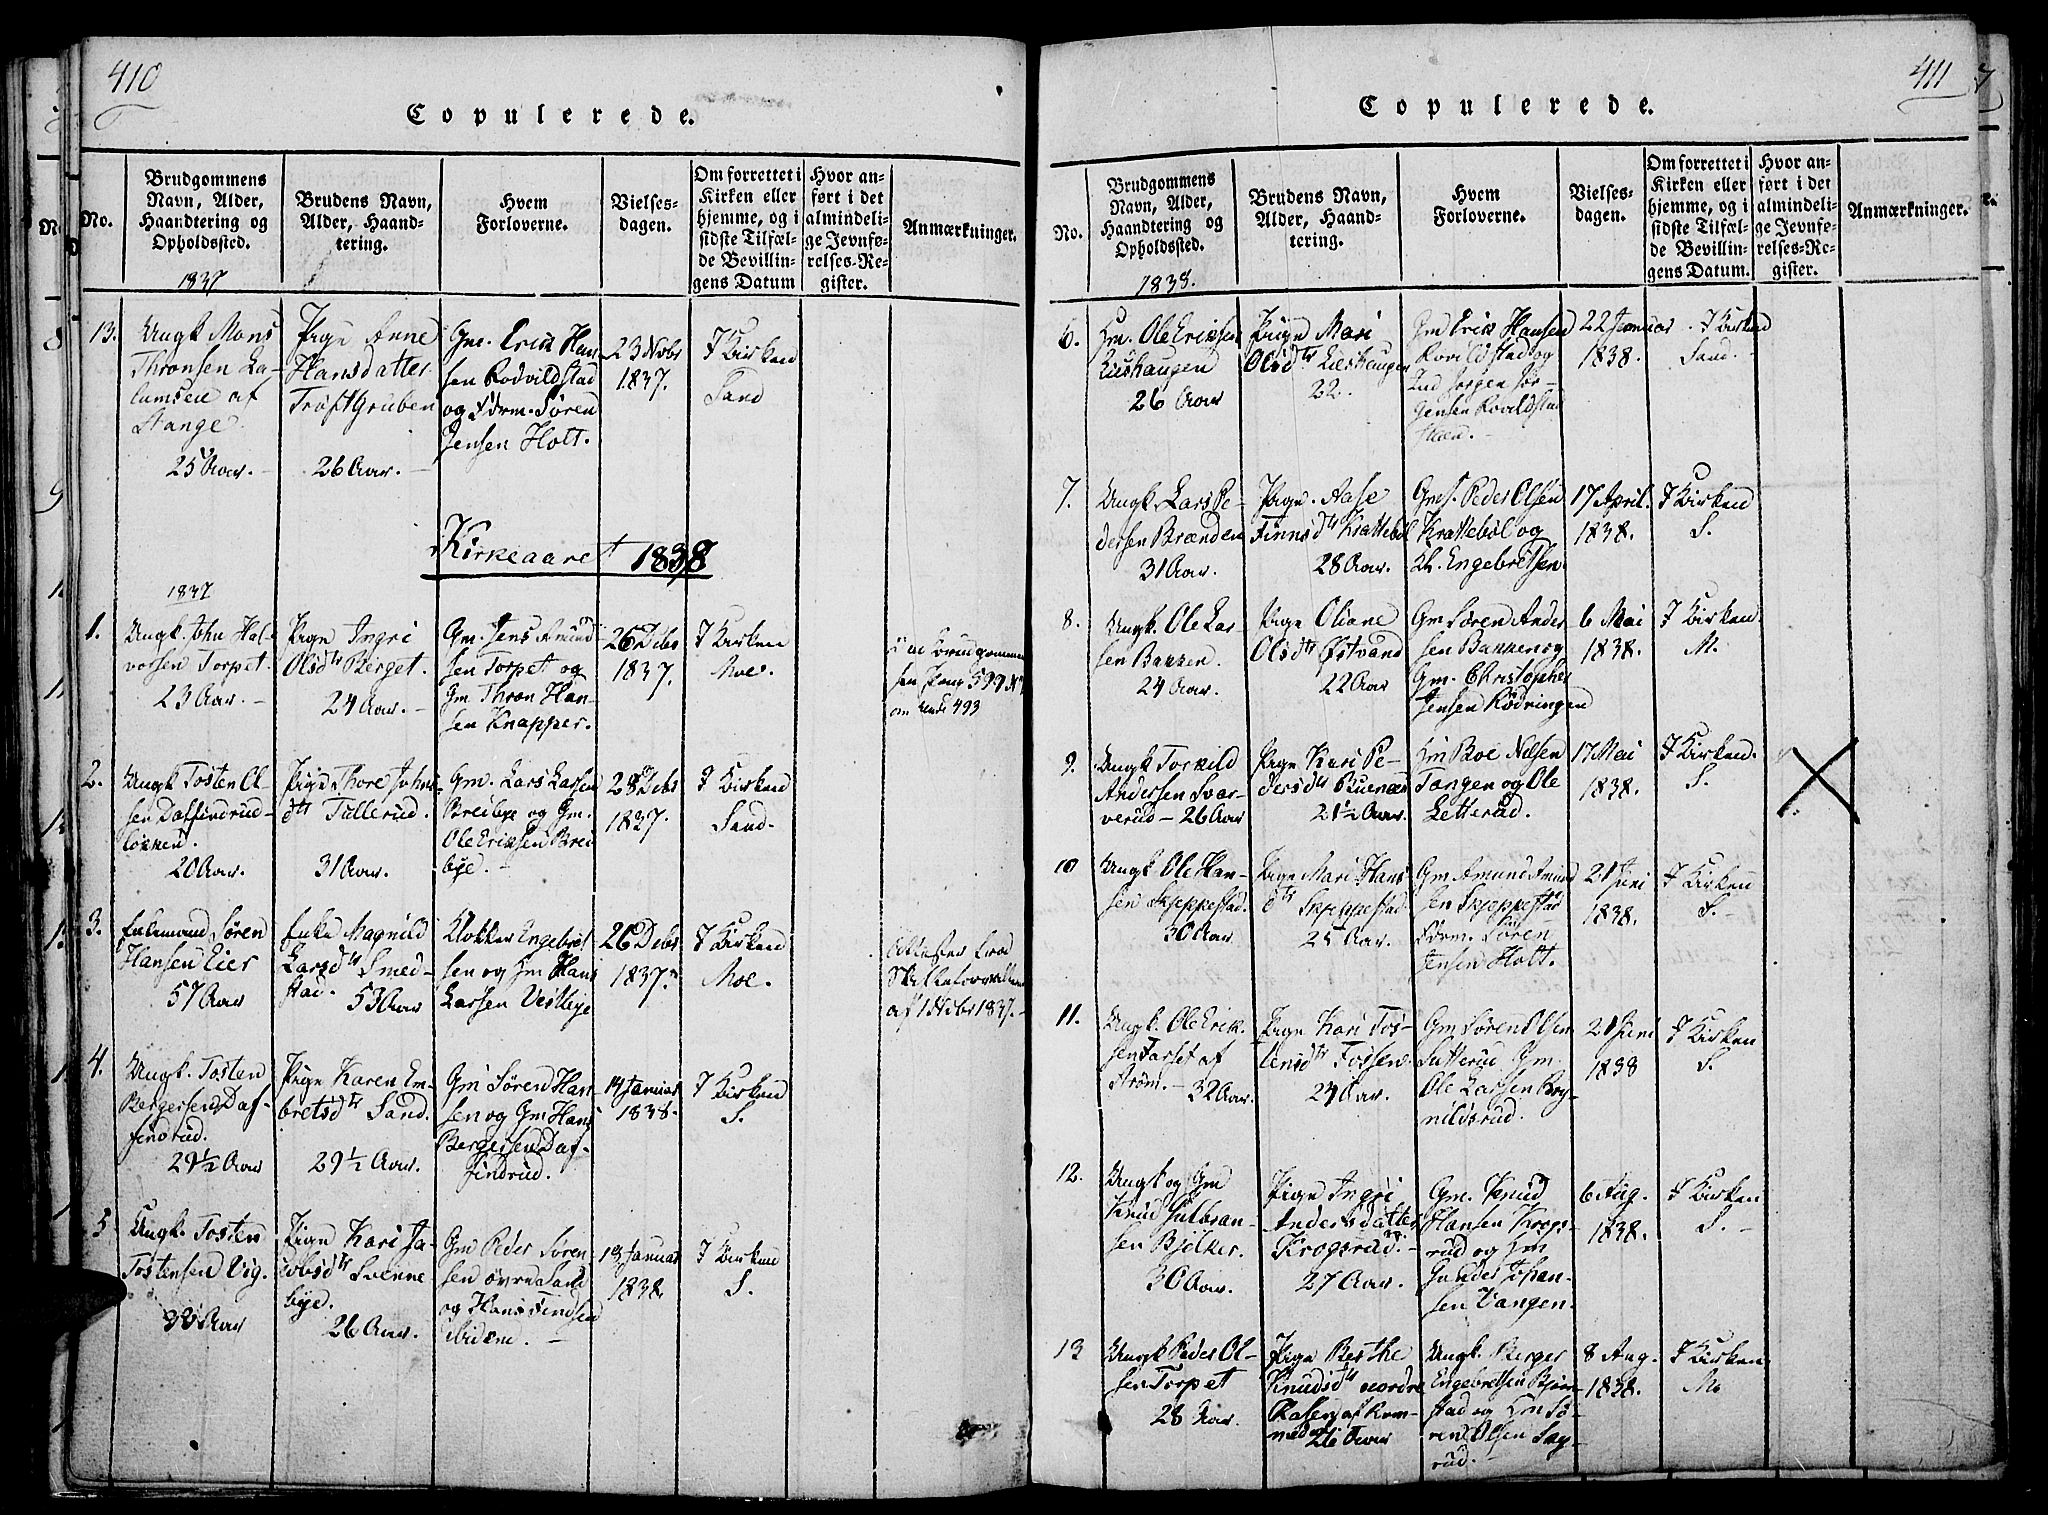 410
Copulerede.
No.
Brudgommens
Navn, Alder,
Haandtering og
Opholdssted.
Brudens Navn,
Alder, Haand-
tering.
Hvem
Forloverne.
Vielses-
dagen.
Om forrettet i
Kirken eller
hjemme, og i
sidste Tilfæl-
de Bevillin-
gens Datum
Hvor an-
ført i det
almindeli-
ge Jevnfø-
relses-Re-
gister.
Anmærkninger.
1837
13.
Ungk Mons
Thronsen
af
Stange
25 Aar.
Pige Anne
Hansdatter
Trøftgruben
26 Aar.
Gm. Erik Han-
sen Rodvildstad
og Søren
Jensen Holt.
23 Nvbr
1837.
I Kirken
Sand
Kirkeaaret 1838
1837
1.
Ungk. John Hal-
vorsen Torpet.
23 Aar.
Pige Ingri
Olsdtr Berget.
24 Aar.
Gm. Jens Amund-
sen Torpet og
Gm Thron Han-
sen Knapper.
26 Debr
1837.
I Kirken
Moe.
2.
Ungk Tosten Ol-
sen Daffindrud-
løkken.
20 Aar.
Pige Thore Johns-
dtr Tullerud.
31 Aar.
Gm. Lars Larsen
Breibye og Gm.
Ole Eriksen Brei
bye.
28 Debr
1837.
I Kirken
Sand.
3.
Enkemand Søren
Hansen Eier
57 Aar
Enke Magnild
Larsdtr Smed-
stad. 53 Aar
Klokker Engebret
sen og Gm Hans
Larsen Vestbye
26 Debr
1837.
I Kirken
Moe.
Attest fra
Skifteforvalteren
af 1 Nvbr 1837.
4.
Ungk. Tosten
Bergersen Daf-
findrud.
29½ Aar
Pige Karen Em-
bretsdtr Sand.
29½ Aar.
Gm Søren Han-
sen og Gm Hans
Bergersen Daf-
findrud.
14 Januar
1838.
I Kirken
S.
5
Ungk. Tosten
Tostensen Vig.
Aar
Pige Kari Ja-
cobsdtr Svenne-
bye.
26 Aar.
Gm Peder Søren-
sen øvre Sand
og Hans Findsen
ibidem.
Januar
1838.
I Kirken
S.
411
Copulerede.
No.
Brudgommens
Navn, Alder,
Haandtering og
Opholdssted.
Brudens Navn,
Alder, Haand-
tering.
Hvem
Forloverne.
Vielses-
dagen.
Om forrettet i
Kirken eller
hjemme, og i
sidste Tilfæl-
de Bevillin-
gens Datum.
Hvor an-
ført i det
almindeli-
ge Jevnfø-
relses-Re-
gister.
Anmærkninger.
1838.
6.
Ole Eriksen
26 Aar
Pige Mari
Olsdtr
22.
Gm Erik Hansen
Rovildstad og
Jørgen Jør-
gensen Rovildstad
22 Januar
1838.
I Kirken
Sand.
7.
Ungk Lars Pe-
dersen Brænden
31 Aar.
Pige Aase
Finnsdtr Krattebøl
28 Aar.
Peder Olsen
Krattebøl og
Kl. Engebretsen
17 April
1838.
I Kirken
S.
8.
Ungk. Ole Lar-
sen Bakken.
24 Aar.
Pige Oliane
Olsdtr Østvand
22 Aar
Gm Søren Ander
sen Bakken og
Gm. Christopher
Jensen Rødningen
6 Mai
1838.
I Kirken
M.
9.
Ungk Torkild
Andersen Svar-
verud - 26 Aar
Pige Kari Pe-
dersdtr
21½ Aar.
Boe Nilsen
Tangen og Ole
Letterud.
17 Mai
1838.
I Kirken.
S.
10
Ungk Ole Han-
sen Skjeppestad.
30 Aar.
Pige Mari Hans
dtr Skjeppestad.
25 Aar.
Gm Amund Amund
sen Skjeppestad
Søren
Jensen Holt.
21 Juni
1838.
I Kirken
S.
11.
Ungk. Ole Erik-
sen Farset af
Strøm. - 32 Aar.
Pige Kari Tos-
tensdtr Fossen
24 Aar.
Gm Søren Olsen
Sutterud Gm.
Ole Larsen Bryg-
nildsrud.
21 Juni
1838
I Kirken
S.
12.
Ungk og Gm
Knud Gulbran-
sen Bjølker.
30 Aar.
Pige Ingri
Andersdatter
Krogsrud.
27 Aar.
Gm. Knud
Hansen Krogs-
rud og Gm
Gunder Johan-
sen Vangen.
6 Aug.
1838.
I Kirken
S.
13
Ungk Peder Ol-
sen Torpet
28 Aar.
Pige Berthe
Knudsdtr nordre
Rasen af Rom-
26 Aar
Ungk. Berger
Engebretsen Bjørn-
stad og Gm Sø-
ren Olsen Sag-
rud.
8 Aug.
1838.
I Kirken
M.